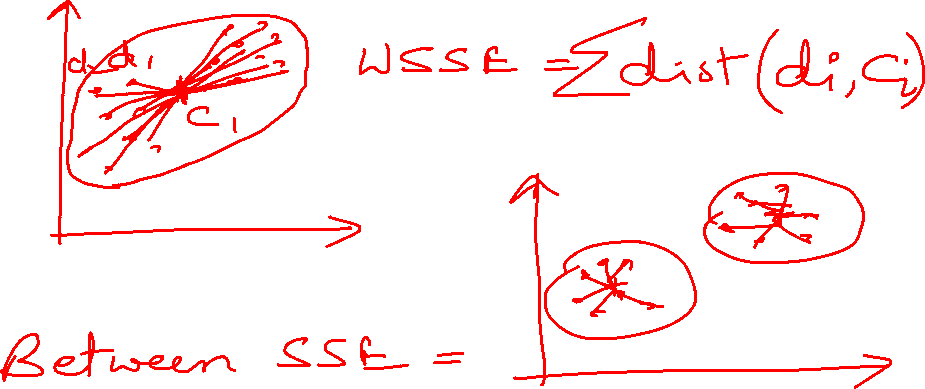 d2 d1
C1
WSSE = ∑dist(di, Ci)
Between SSE =